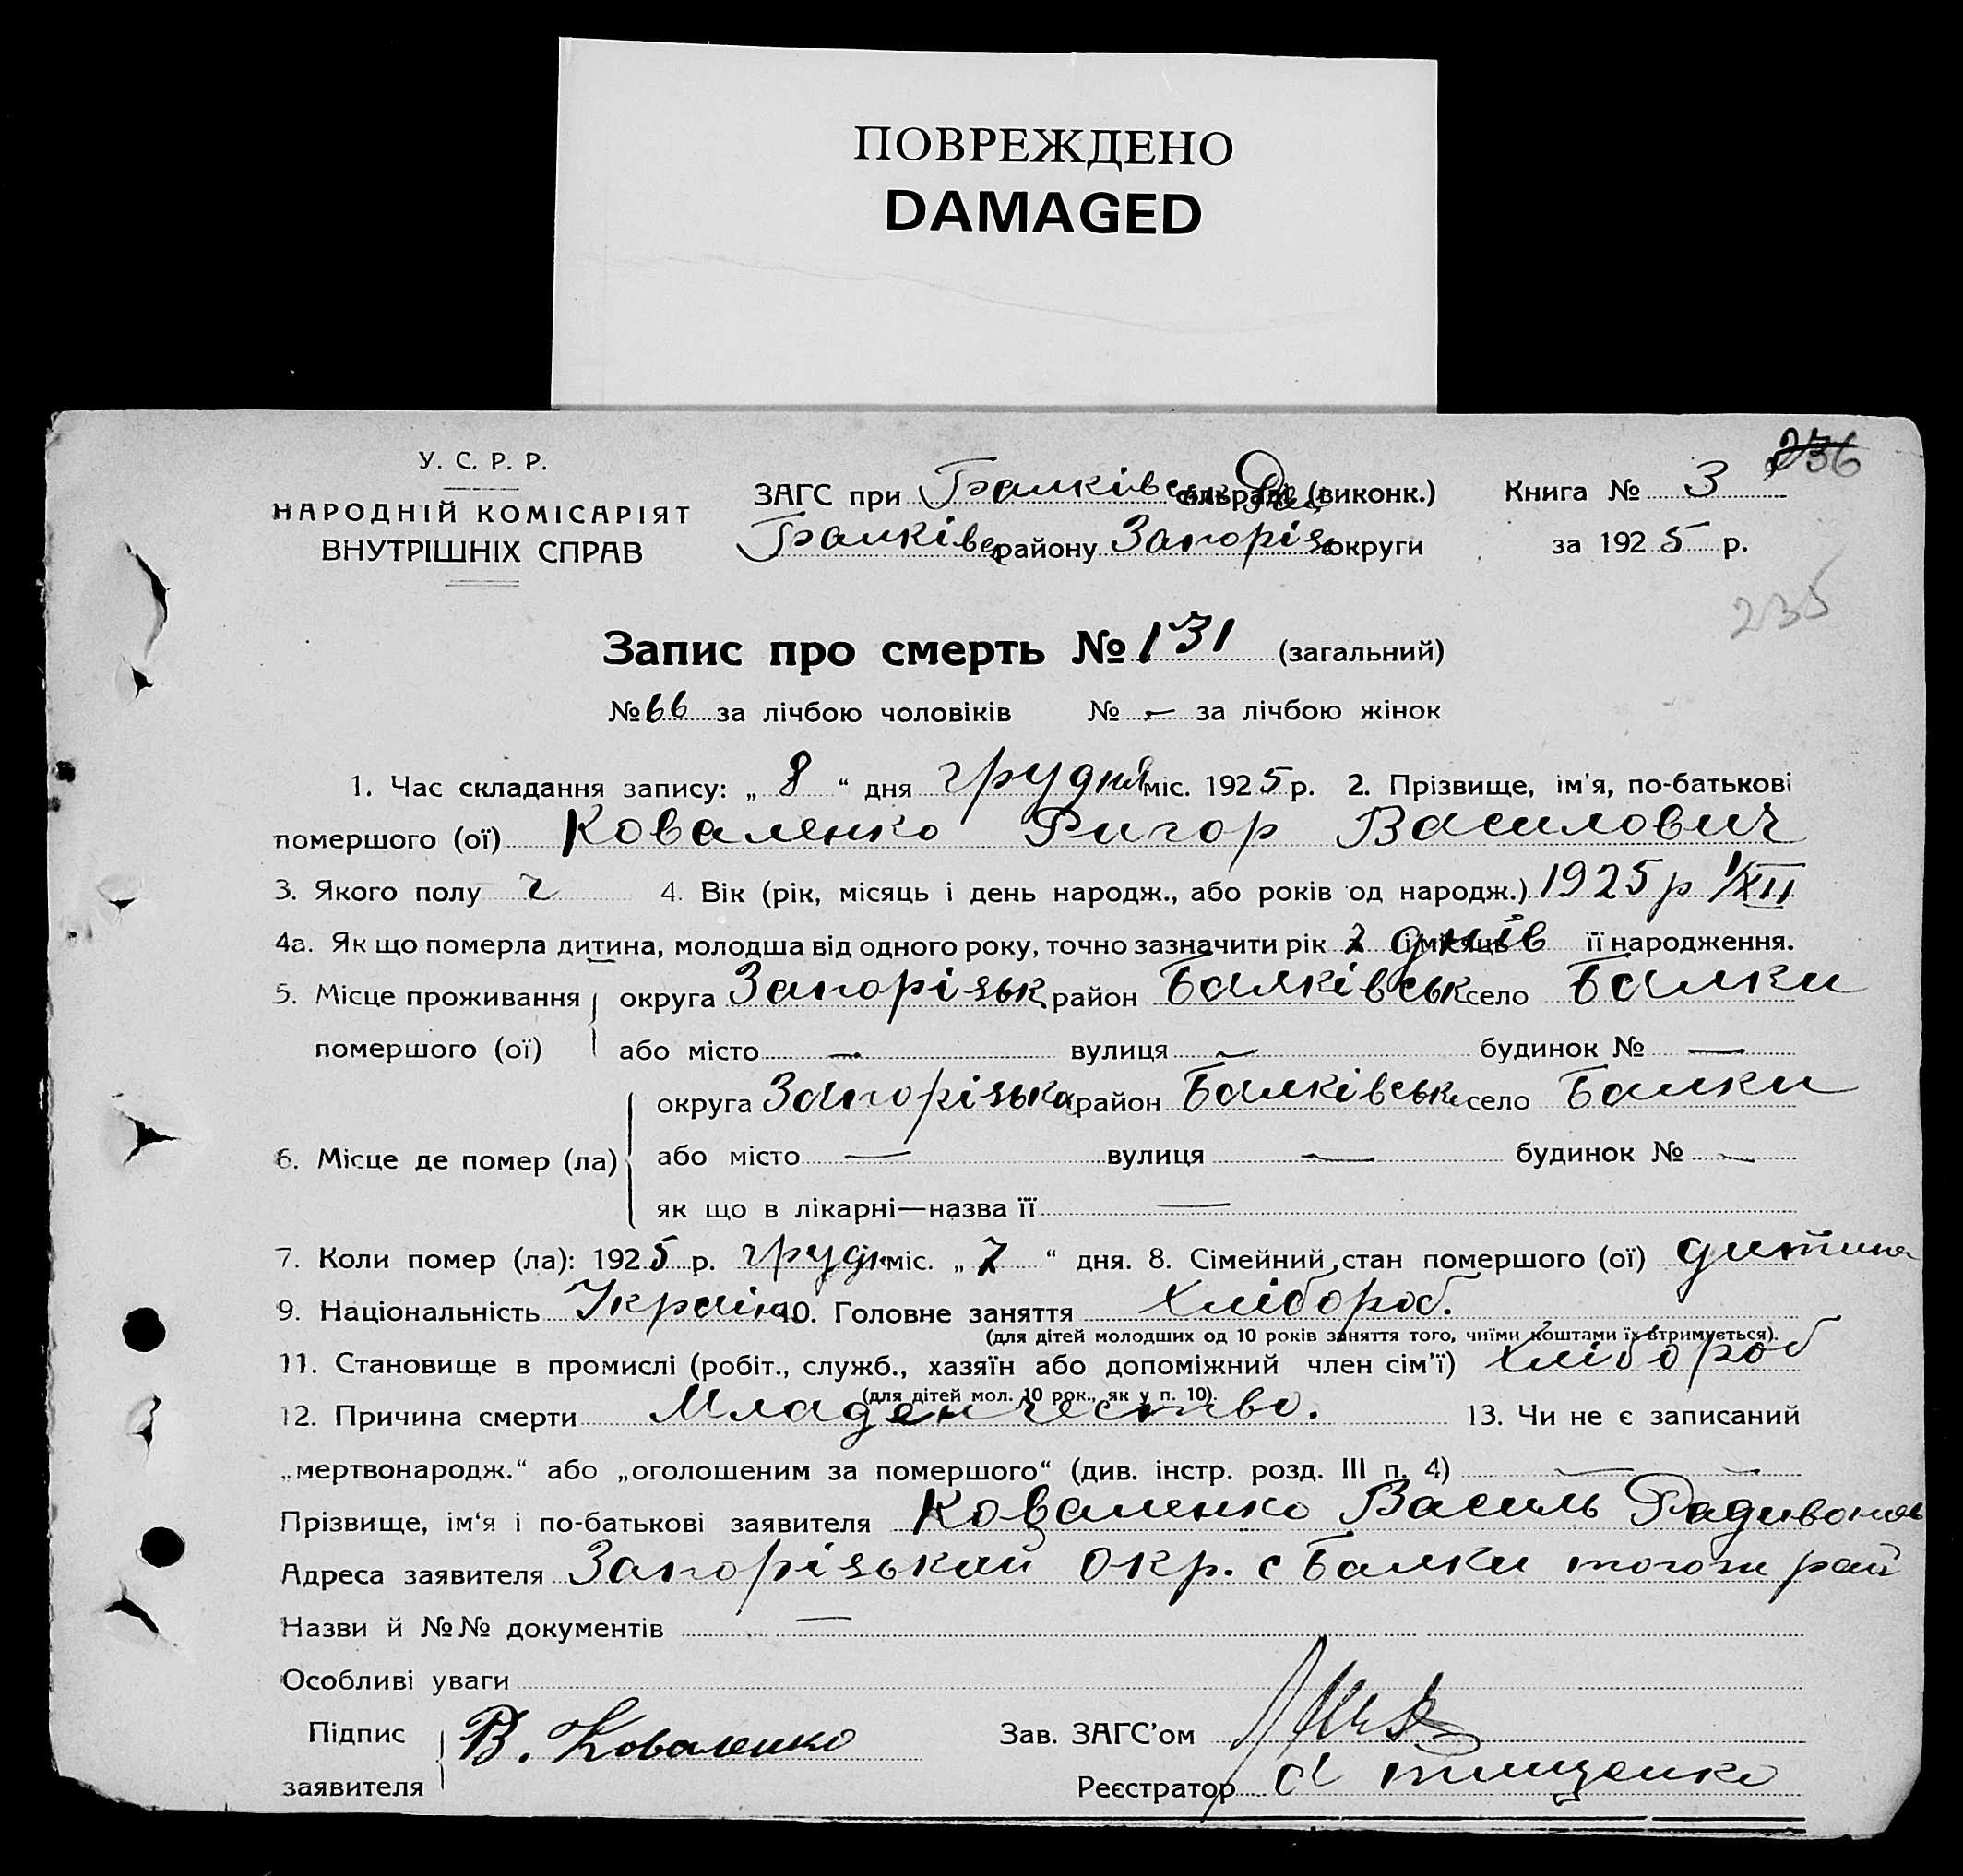 ПОВРЕЖДЕНО
DAMAGED
236
У. С. Р. Р.
НАРОДНІЙ КОМІСАРІЯТ
ВНУТРІШНІХ СПРАВ
ЗАГС при Балківськ сільраді (виконк.)
Балківськ району Запорізь округи
Книга № 3
за 1925 р.
235
Запис про смерть № 131 (загальний)
№ 66 за лічбою чоловіків № – за лічбою жінок
1. Час складання запису: „ 8 “ дня грудня міс. 1925 р. 2. Прізвище, ім'я, по-батькові
помершого (ої) Коваленко Ригор Василович
3. Якого полу ч 4. Вік (рік, місяць і день народж., або років од народж.) 1925 р 1/XII
4а. Як що померла дитина, молодша від одного року, точно зазначити рік 7 днів і місяць її народження.
5. Місце проживання помершого (ої) округа Запорізьк район Балківськ село Балки
або місто — вулиця — будинок № —
6. Місце де помер (ла) округа Запорізька район Балківськ село Балки
або місто — вулиця — будинок № —
як що в лікарні—назва її —
7. Коли помер (ла): 1925 р. грудн міс. „ 7 “ дня. 8. Сімейний стан помершого (ої) дитина
9. Національність Україн 10. Головне заняття Хлібороб.
(для дітей молодших од 10 років заняття того, чиїми коштами їх втримується).
11. Становище в промислі (робіт., служб., хазяїн або допоміжний член сім'ї) хлібороб
(для дітей мол. 10 рок., як у п. 10).
12. Причина смерти Младенчество. 13. Чи не є записаний
„мертвонародж.“ або „оголошеним за помершого“ (див. інстр. розд. III п. 4) —
Прізвище, ім'я і по-батькові заявителя Коваленко Василь Радивонов
Адреса заявителя Запорізькой Окр. с Балки того ж рай
Назви й №№ документів —
Особливі уваги
Підпис заявителя В. Коваленко
Зав. ЗАГС'ом
Реєстратор Тищенко